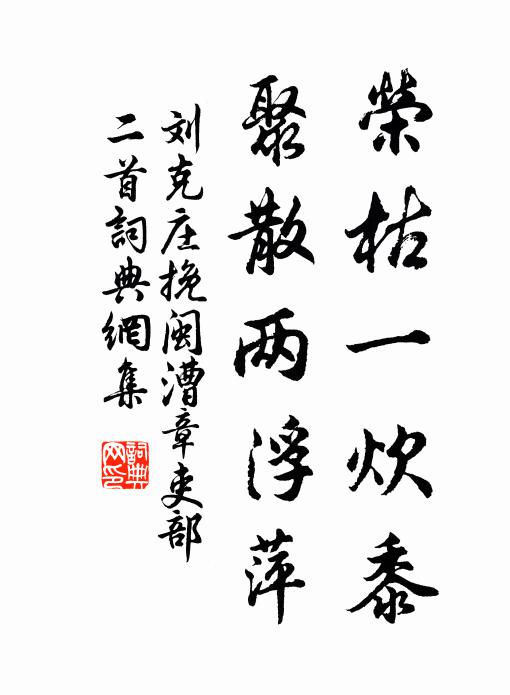 榮枯一炊黍
聚散两浮萍
刘克庄挽闽漕章吏部
二首詞典網集
詞典网印